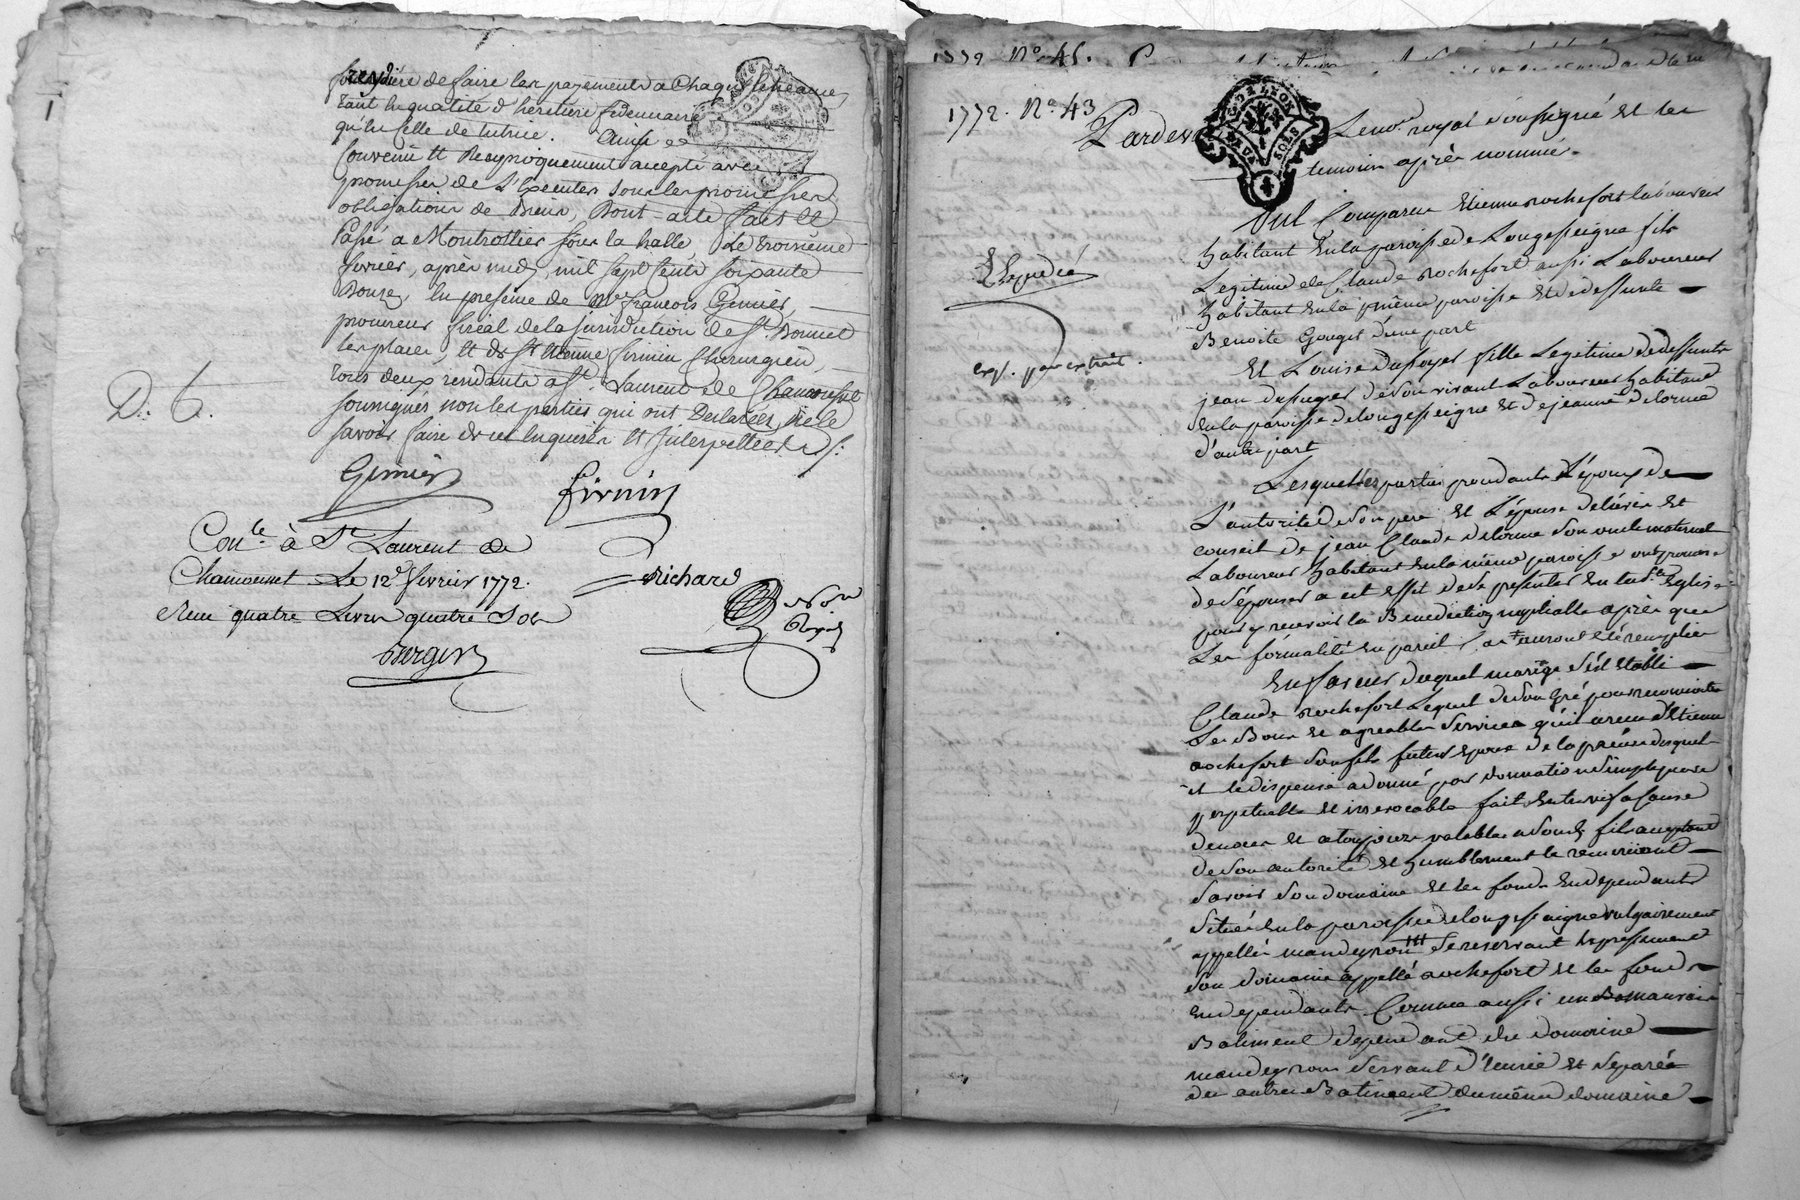 de faire les payements a Chaque echeance
tant en qualité d'heritiere fiduciaire
qu'en celle de tutrice. Ainsi
Convenu et Reciproquement accepté avec
promesses de L'Executer sous les promesses
obligations de Biens, Dont acte fait et
Passé a Montrottier sous la halle, Le troisieme
fevrier, après midy, mil sept cents soixante
Douze, En presence de Me. François Gimier,
procureur fiscal de la jurisdiction de St. Bonnet
les places, et de Sr. Etienne firmin Chirurgien,
tous deux residants a St. Laurent de Chamousset
soussignés non les parties qui ont Declarées ne le
savoir faire de ce Enquises et Interpellées
Gimier
firmin
D.: 6.
Con.le à St Laurent de
Chamousset Le 12e fevrier 1772.
Reçu quatre Livres quatre Sols
Berger
Richard
Nore
Royal
1772 No. 45.
1772. No. 43
Pardev
G. DE LYON
SOLS
Le nore. royal soussigné et les
temoins après nommés
Expedié
exp. par extrait.
Out Comparu Etienne rochefort laboureur
habitant en la paroisse de Longessaigne fils
Legitime de Claude rochefort aussi Laboureur
habitant en la même paroisse et de deffunte
Benoite Gouget d'une part
Et Louise dupuget fille Legitime de deffunts
jean dupuget de son vivant Laboureur habitant
en la paroisse de longessaigne et de jeanne delorme
d'autre part
Lesquelles parties procedants L'époux de
L'autorité de son pere et L'épouse de l'avis et
conseil de jean Claude delorme son oncle maternel
Laboureur habitant en la même paroisse ont promis
de s'épouser a cet effet de se presenter en nre. ste. Eglise
pour y recevoir la Benediction nuptialle après que
Les formalités en pareil cas auront été remplies
En faveur duquel mariage s'est établi
Claude rochefort Lequel de son gré pour reconnoitre
Les Bons et agreables services qu'il a reçu d'Etienne
rochefort son fils futur époux de la preuve desquels
il le dispense a donné par donnation simple pure
perpetuelle et irrevocable fait entre vifs a cause
de noces et a toujours valable a son dt. fils acceptant
de son autorité et humblement le remerciant
Savoir son domaine et les fonds en dependants
Situés en la paroisse de longessaigne vulgairement
appellé mandeyron se reservant expressement
son domaine appellé rochefort et les fonds
en dependants Comme aussi un mauvais
Batiment dependant du domaine
mandeyron servant d'écurie et separée
des autres Batiment du même domaine